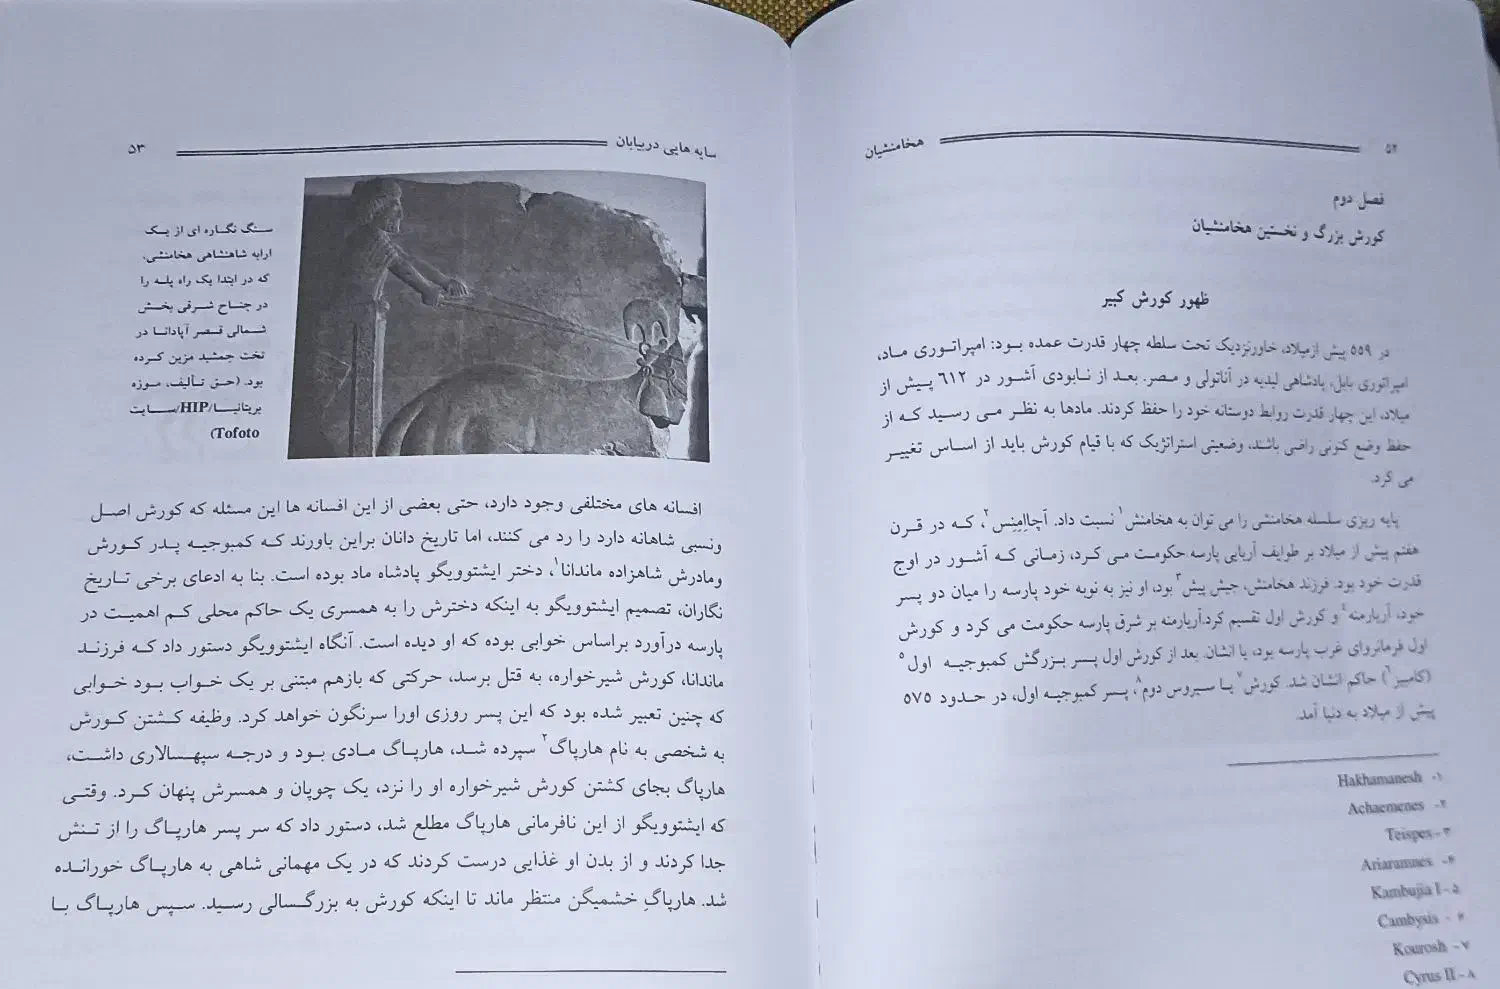 ۵۲
هخامنشیان
فصل دوم
کورش بزرگ و نخستین هخامنشیان
ظهور کورش کبیر
در ۵۵۹ پیش ازمیلاد، خاورنزدیک تحت سلطه چهار قدرت عمده بود: امپراتوری ماد،
امپراتوری بابل، پادشاهی لیدیه در آناتولی و مصر. بعد از نابودی آشور در ۶۱۲ پیش از
میلاد، این چهار قدرت روابط دوستانه خود را حفظ کردند. مادها به نظر می رسید که از
حفظ وضع کنونی راضی باشند، وضعیتی استراتژیک که با قیام کورش باید از اساس تغییر
می کرد.
پایه ریزی سلسله هخامنشی را می توان به هخامنش۱ نسبت داد. آچااِمِنِس۲، که در قرن
هفتم پیش از میلاد بر طوایف آریایی پارسه حکومت می کرد، زمانی که آشور در اوج
قدرت خود بود. فرزند هخامنش، جیش پیش۳ بود، او نیز به نوبه خود پارسه را میان دو پسر
خود، آریارمنه۴ و کورش اول تقسیم کرد.آریارمنه بر شرق پارسه حکومت می کرد و کورش
اول فرمانروای غرب پارسه بود، یا انشان. بعد از کورش اول پسر بزرگش کمبوجیه اول۵
(کامبیز۶) حاکم انشان شد. کورش۷ یا سیروس دوم۸، پسر کمبوجیه اول، در حدود ۵۷۵
پیش از میلاد به دنیا آمد.
۱- Hakhamanesh
۲- Achaemenes
۳- Teispes
۴- Ariaramnes
۵- Kambujia I
۶- Cambysis
۷- Kourosh
۸- Cyrus II
سایه هایی دربیابان
۵۳
سنگ نگاره ای از یک
ارابه شاهنشاهی هخامنشی،
که در ابتدا یک راه پله را
در جناح شرقی بخش
شمالی قصر آپادانا در
تخت جمشید مزین کرده
بود. (حق تألیف، موزه
بریتانیا/HIP/سایت
Tofoto)
افسانه های مختلفی وجود دارد، حتی بعضی از این افسانه ها این مسئله که کورش اصل
ونسبی شاهانه دارد را رد می کنند، اما تاریخ دانان براین باورند که کمبوجیه پدر کورش
ومادرش شاهزاده ماندانا۱، دختر ایشتوویگو پادشاه ماد بوده است. بنا به ادعای برخی تاریخ
نگاران، تصمیم ایشتوویگو به اینکه دخترش را به همسری یک حاکم محلی کم اهمیت در
پارسه درآورد براساس خوابی بوده که او دیده است. آنگاه ایشتوویگو دستور داد که فرزند
ماندانا، کورش شیرخواره، به قتل برسد، حرکتی که بازهم مبتنی بر یک خواب بود خوابی
که چنین تعبیر شده بود که این پسر روزی اورا سرنگون خواهد کرد. وظیفه کشتن کورش
به شخصی به نام هارپاگ۲ سپرده شد، هارپاگ مادی بود و درجه سپهسالاری داشت،
هارپاگ بجای کشتن کورش شیرخواره او را نزد، یک چوپان و همسرش پنهان کرد. وقتی
که ایشتوویگو از این نافرمانی هارپاگ مطلع شد، دستور داد که سر پسر هارپاگ را از تنش
جدا کردند و از بدن او غذایی درست کردند که در یک مهمانی شاهی به هارپاگ خورانده
شد. هارپاگِ خشمیگن منتظر ماند تا اینکه کورش به بزرگسالی رسید. سپس هارپاگ با